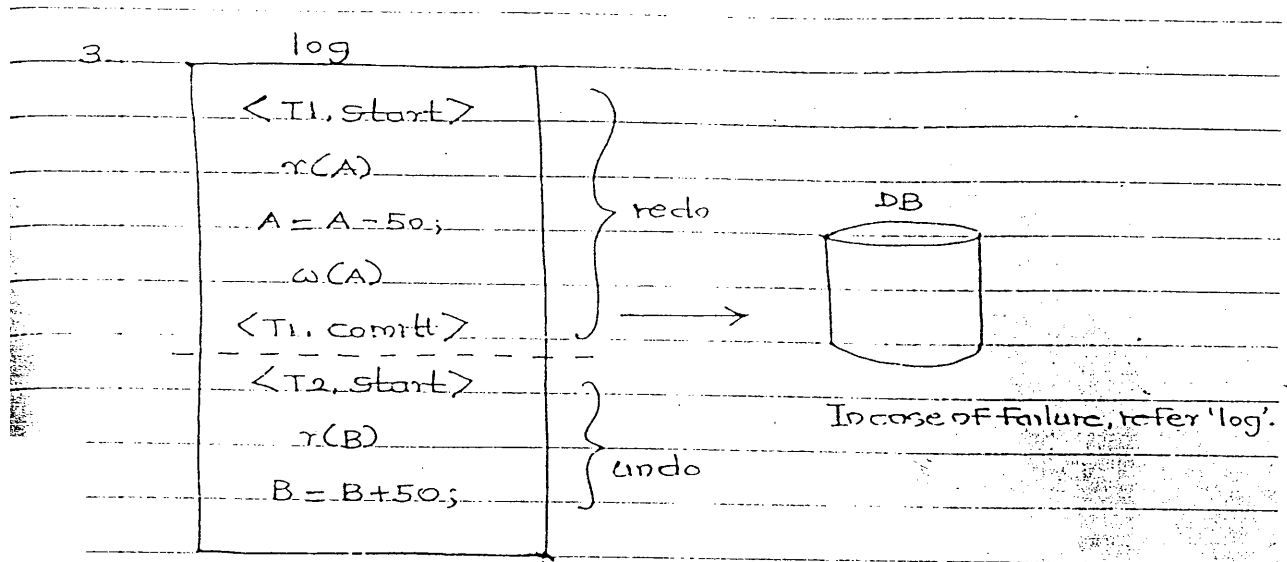 3
log
<T1, start>
r(A)
A = A - 50;
w(A)
<T1, comitt>
redo
DB
<T2, start>
r(B)
B = B + 50;
undo
In case of failure, refer 'log'.